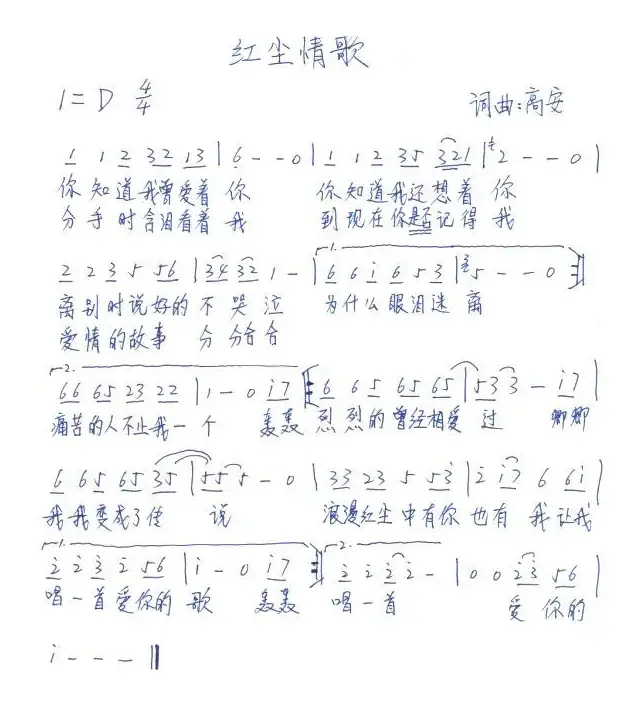 红尘情歌
1=D 4/4 词曲:高安
1 1 2 32 13 | 6 - - 0 | 1 1 2 35 321 | 2 - - 0 |
你知道我曾爱着 你 你知道我还想着 你
分手时含泪看着 我 到现在你是否记得 我
1.
2 2 3 5 56 | 34 32 1 - | 6 6 i 6 5 3 | 5 - - 0 :||
离别时说好的 不 哭 泣 为什么眼泪迷 离
爱情的故事 分 分合 合
2.
66 65 23 22 | 1 - 0 i7 ||: 6 6 5 65 65 | 5 3 3 - i7 |
痛苦的人不止我一 个 轰轰 烈 烈的曾经相爱 过 卿卿
6 6 5 65 35 | 55 5 - 0 | 33 23 5 53 | 2 i7 6 6i |
我我变成了传 说 浪漫红尘 中有你 也有 我让我
1. 2.
2 2 3 2 56 | i - 0 i7 :|| 2 2 2 2 - | 0 0 23 56 |
唱一首爱你的 歌 轰轰 唱一首 爱 你的
i - - - ||